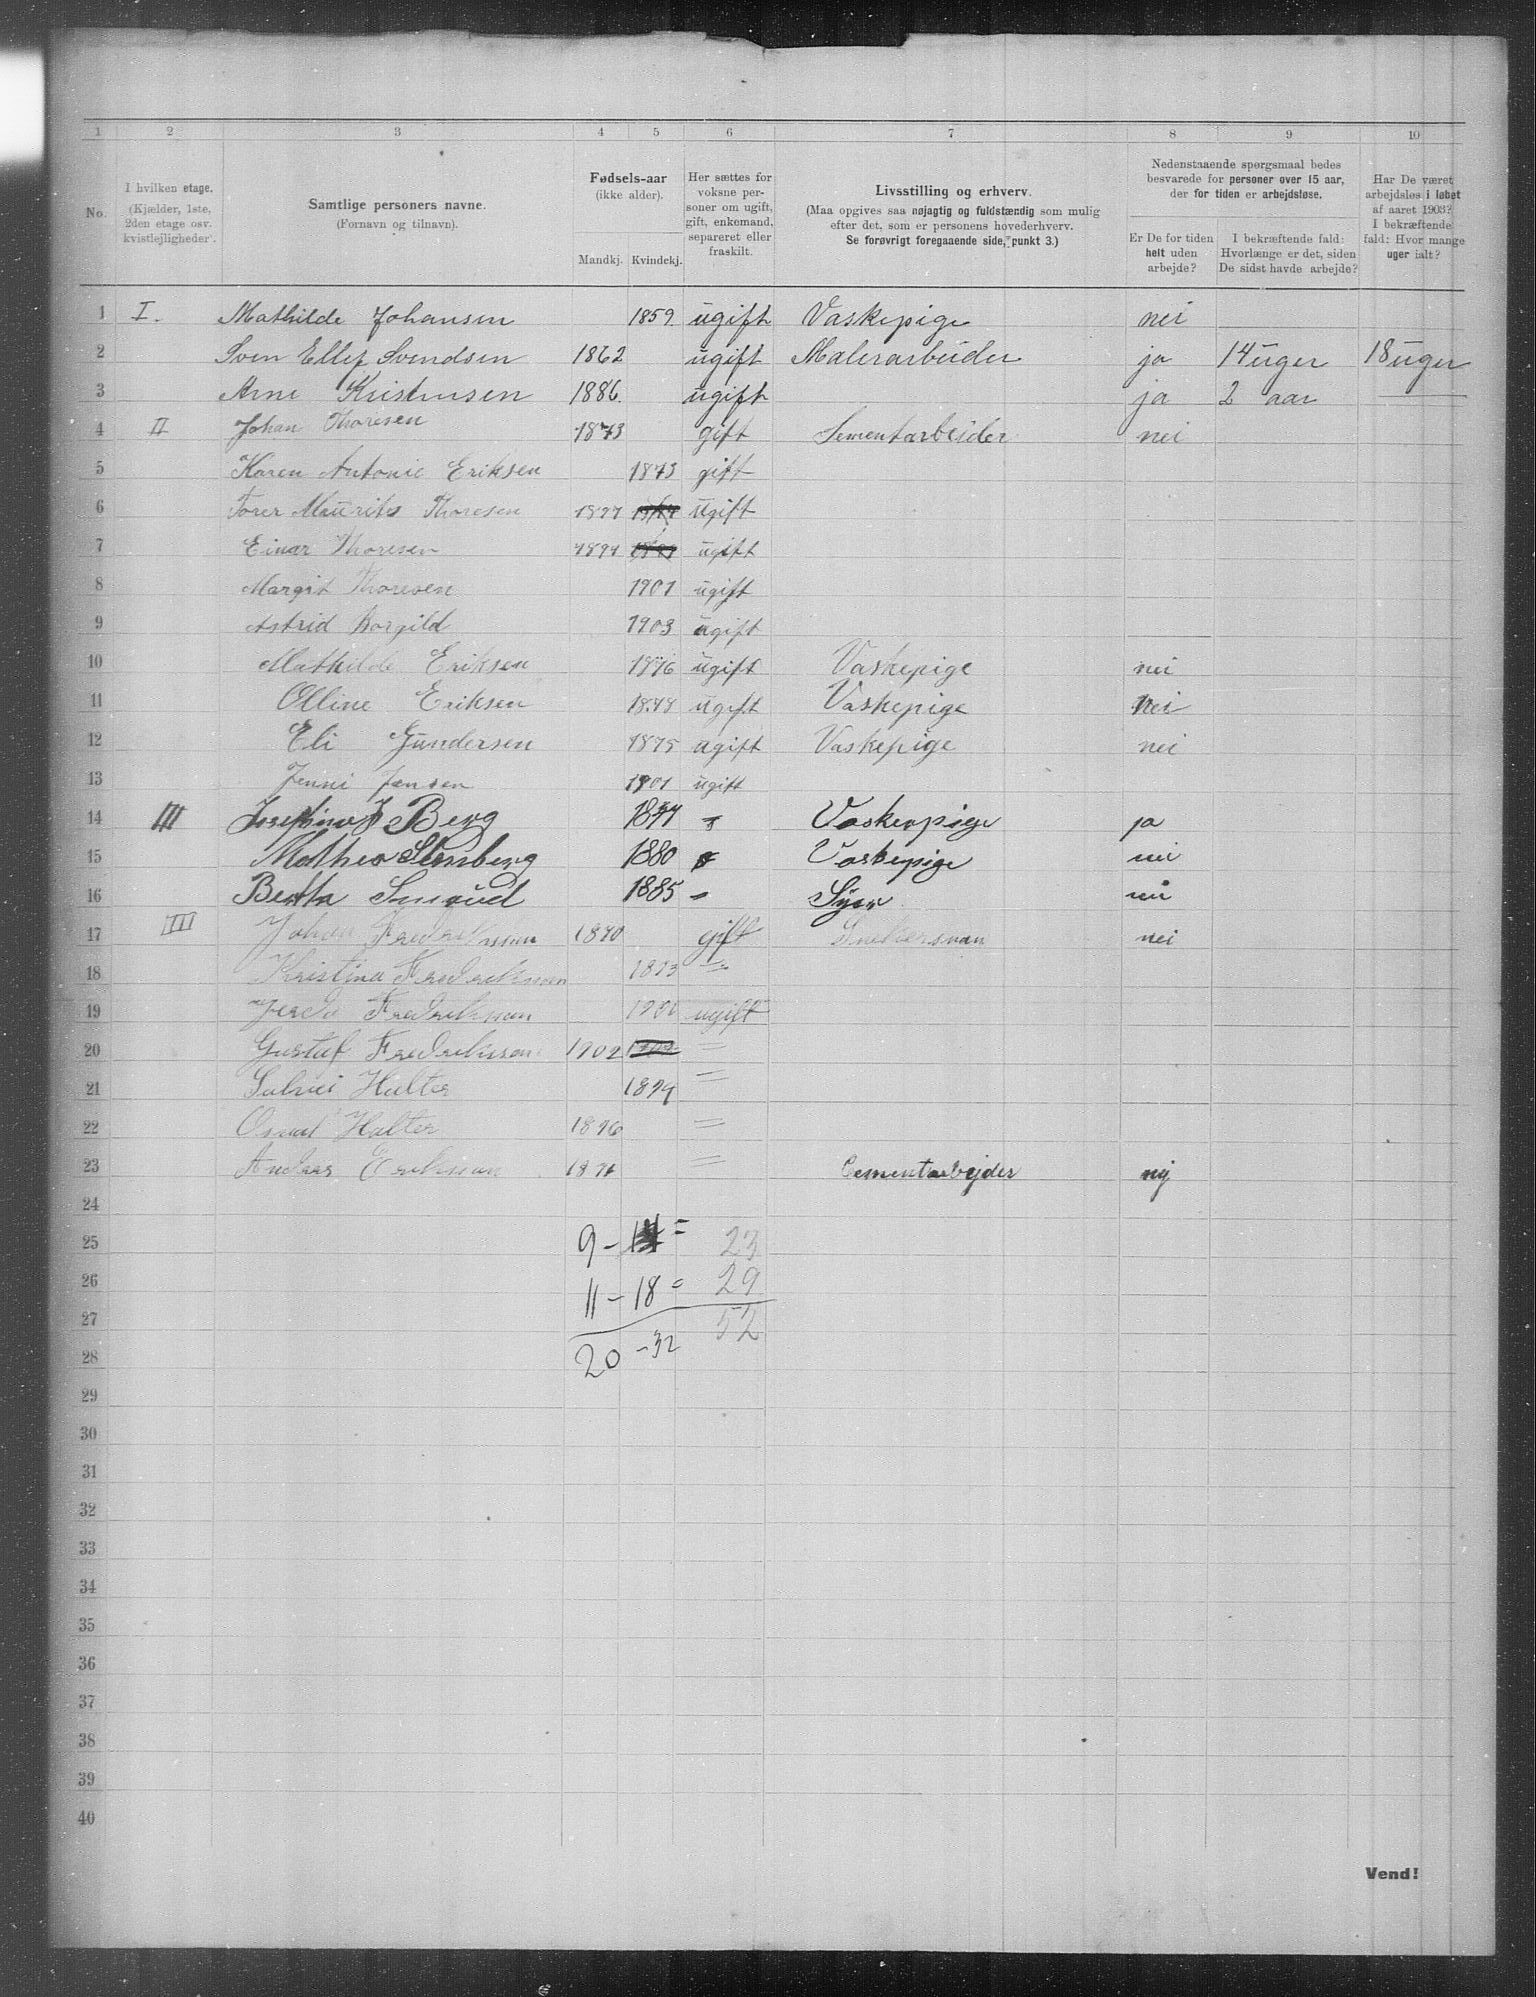 1 2 3 4 5 6 7 8 9 10
No. I hvilken etage. (Kjælder, 1ste, 2den etage osv. kvistlejligheder). Samtlige personers navne. (Fornavn og tilnavn). Fødsels-aar (ikke alder). Mandkj. Kvindekj. Her sættes for voksne personer om ugift, gift, enkemand, separeret eller fraskilt. Livsstilling og erhverv. (Maa opgives saa nøjagtig og fuldstændig som mulig efter det, som er personens hovederhverv. Se forøvrigt foregaaende side, punkt 3.) Nedenstaaende spørgsmaal bedes besvarede for personer over 15 aar, der for tiden er arbejdsløse. Er De for tiden helt uden arbejde? I bekræftende fald: Hvorlænge er det, siden De sidst havde arbejde? Har De været arbejdsløs i løbet af aaret 1903? I bekræftende fald: Hvor mange uger ialt?
1 I. Mathilde Johansen 1859. ugift Vaskepige nei
2 Sven Ellef Svendsen 1862 ugift Malerarbeider ja 14 uger 18 uger
3 Arne Kristensen 1886. ugift ja 2 aar
4 II Johan Thoresen 1873 gift Sementarbeider nei
5 Karen Antonie Eriksen 1873 gift
6 Torer Maurits Thoresen 1897 ugift
7 Einar Thoresen 1897 ugift
8 Margit Thoresen 1901 ugift
9 Astrid Borgild 1903 ugift
10 Mathilde Eriksen 1876 ugift Vaskepige nei
11 Olline Eriksen ugift Vaskepige nei
12 Eli Gundersen 1875 ugift Vaskepige nei
13 Jenni Jansen 1901 ugift
14 III Berg 1877 Vaskepige ja
15 1880 Vaskepige nei
16 1885 nei
17 III Johan Fredriksson 1870 gift nei
18 Kristina Fredriksson 1873 〃
19 Fredriksson ugift
20 Gustaf Fredriksson 1902 〃
21 Halter 〃
22 Halter 1896 〃
23 Eriksson 1871 〃 Cementarbejder nej
24
25 9 – 14 = 23
26 11 – 18 = 29
27 52
28 20 – 32
29
30
31
32
33
34
35
36
37
38
39
40
Vend!